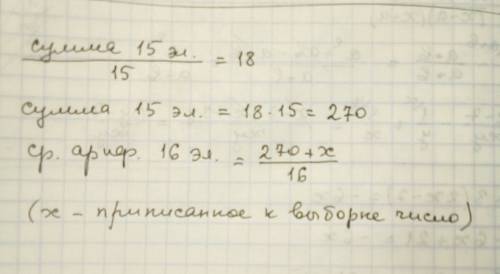 сумма 15 эл. / 15 = 18
сумма 15 эл. = 18 · 15 = 270
ср. арифр. 16 эл. = 270 + x / 16
(x – приписанное к выборке число)